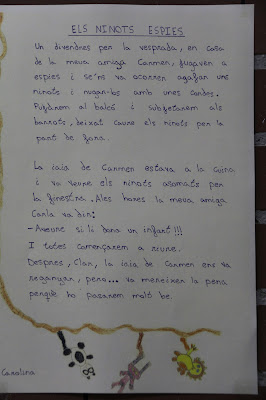 ELS NINOTS ESPIES
Un divendres per la vesprada, en casa
de la meua amiga Carmen, jugaven a
espies i se'ns va ocorrer agafar uns
ninots i nugar-los amb unes cordes.
Pujàrem al balcó i subjetarem als
barrots, deixat caure els ninots per la
part de fora.
La iaia de Carmen estava a la cuina
i va veure els ninots asomats per
la finestra. Ales hores la meua amiga
Carla va dir:
- Aveure si li dona un infart!!!
I totes començarem a riure.
Despres, Clar, la iaia de Carmen ens va
reganyar, pero... va mereixer la pena
perquè ho pasarem molt be.
Carolina